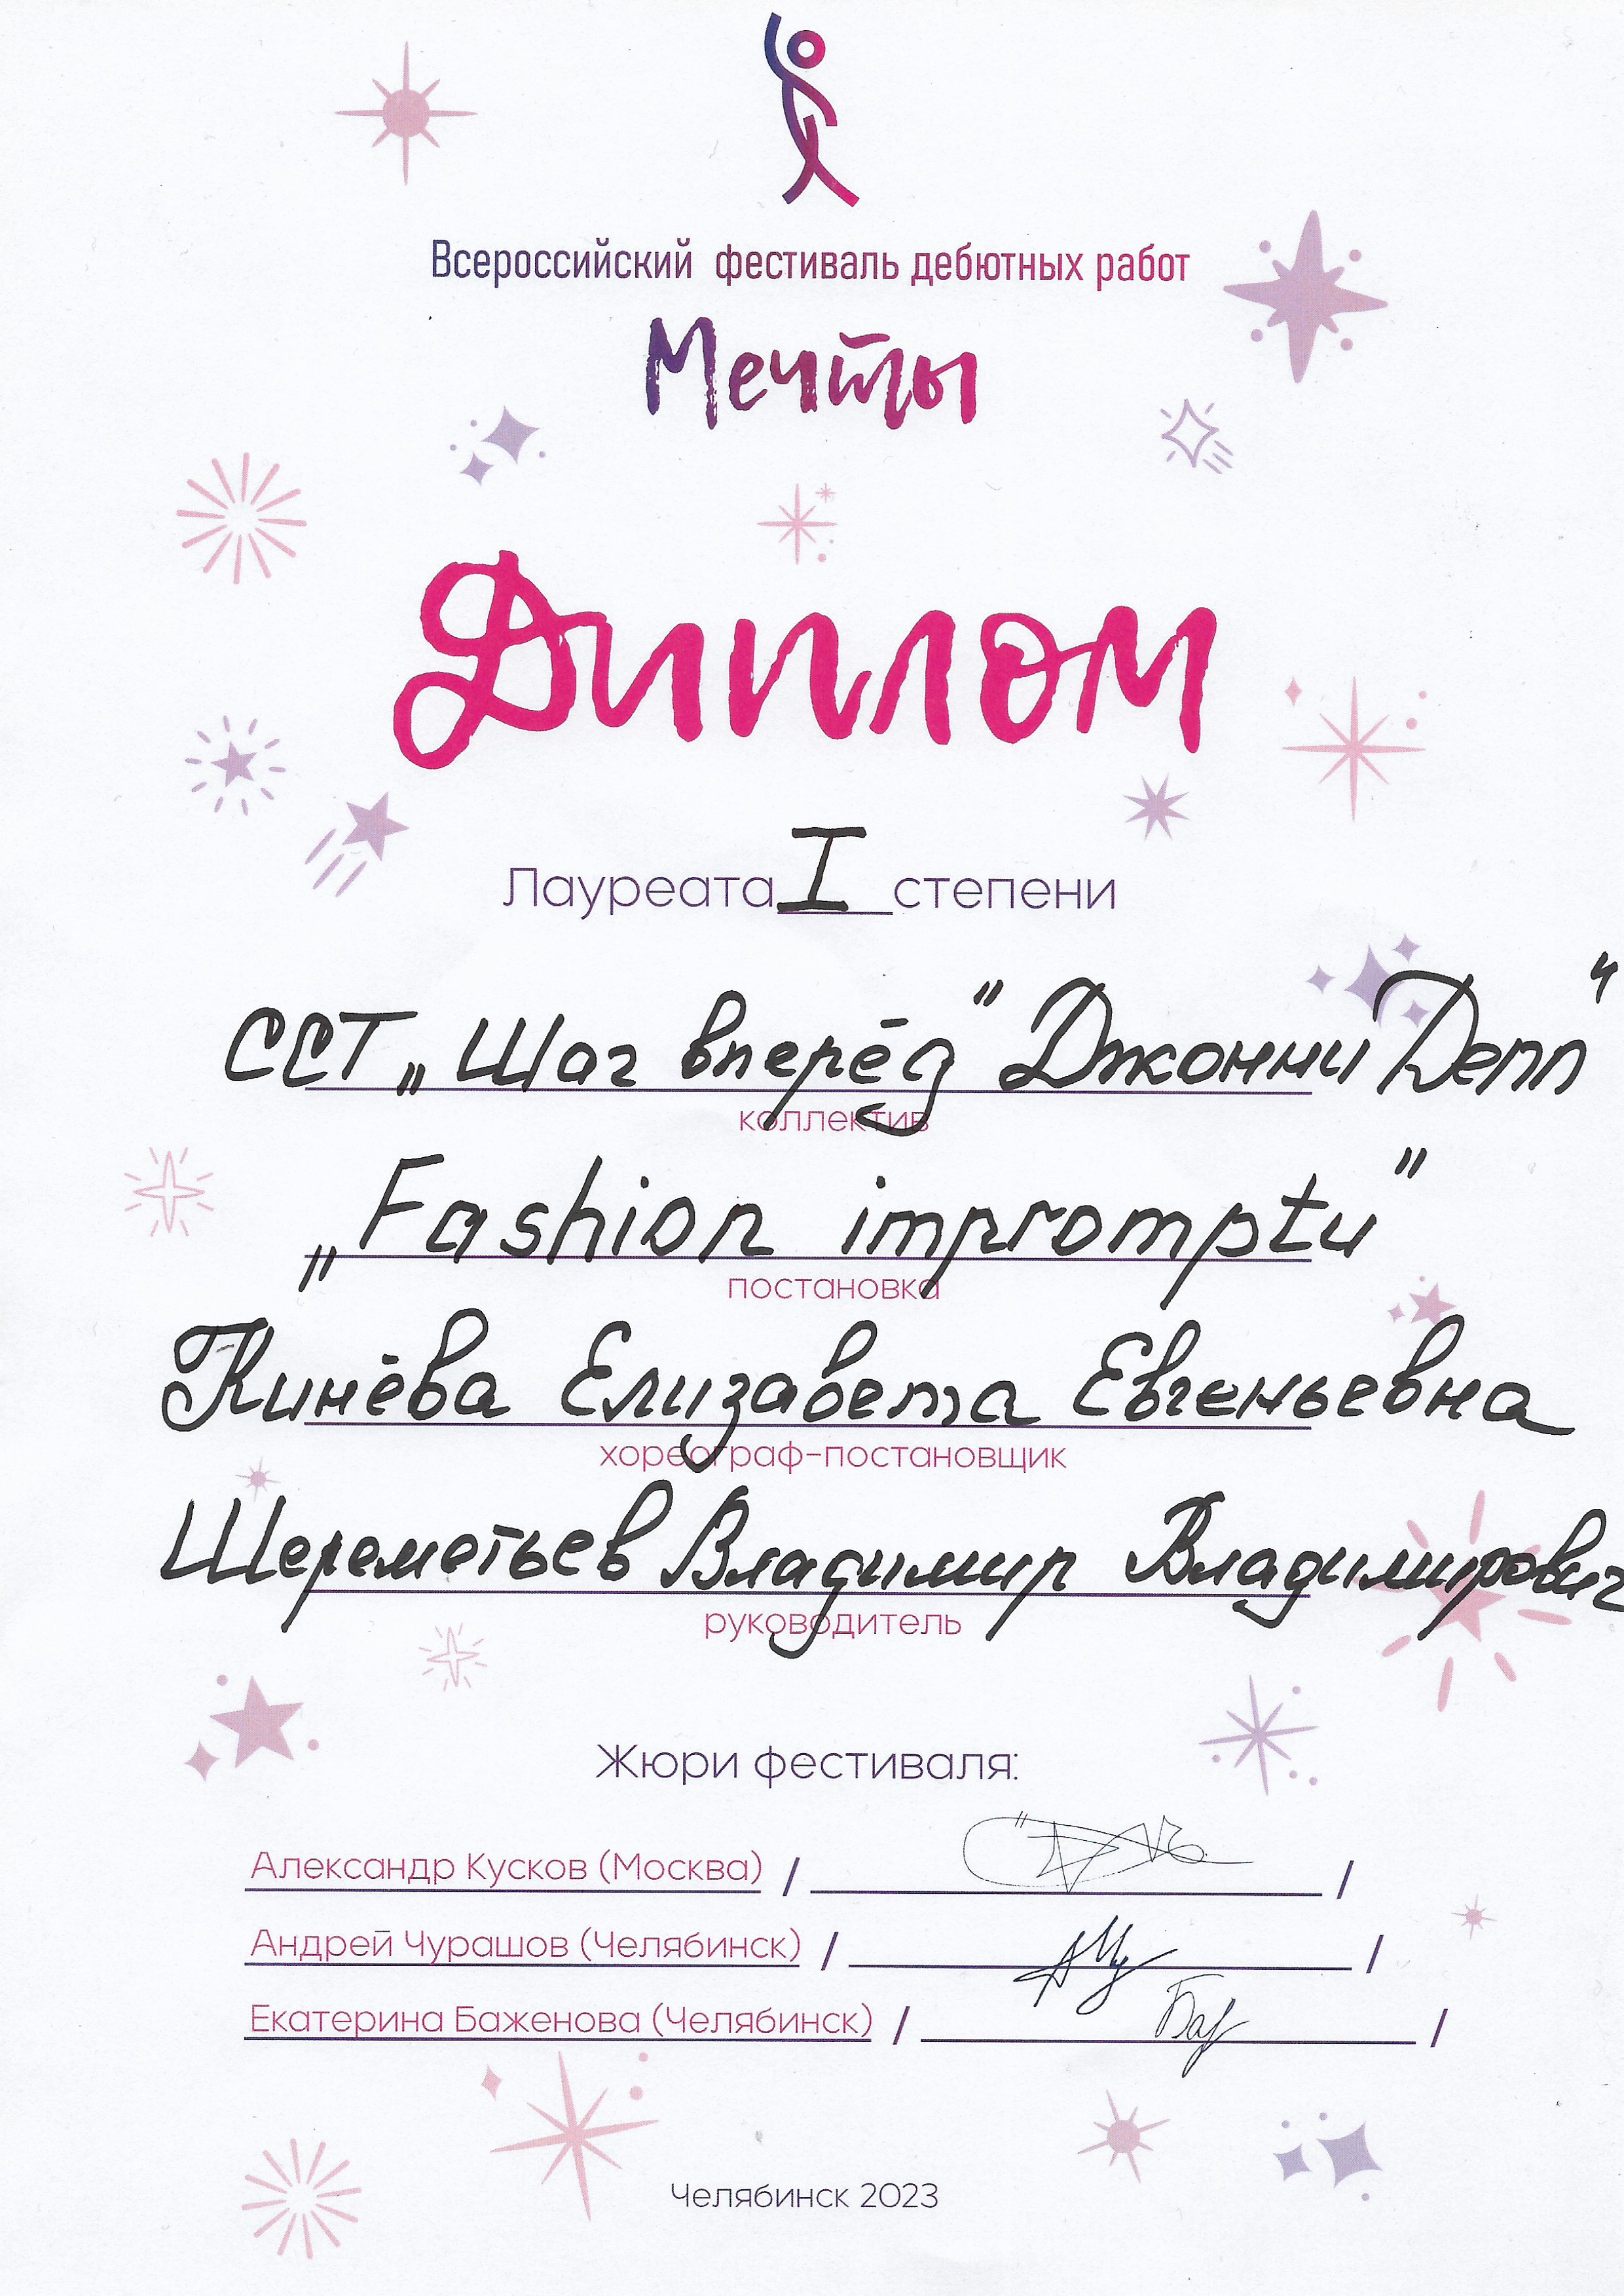 Всероссийский фестиваль дебютных работ
Мечты
Диплом
Лауреата I степени
ССТ „Шаг вперёд" Джонни Депп"
коллектив
„Fashion impromptu"
постановка
Кинёва Елизавета Евгеньевна
хореограф-постановщик
Шереметьев Владимир Владимирович
руководитель
Жюри фестиваля:
Александр Кусков (Москва) / /
Андрей Чурашов (Челябинск) / /
Екатерина Баженова (Челябинск) / /
Челябинск 2023